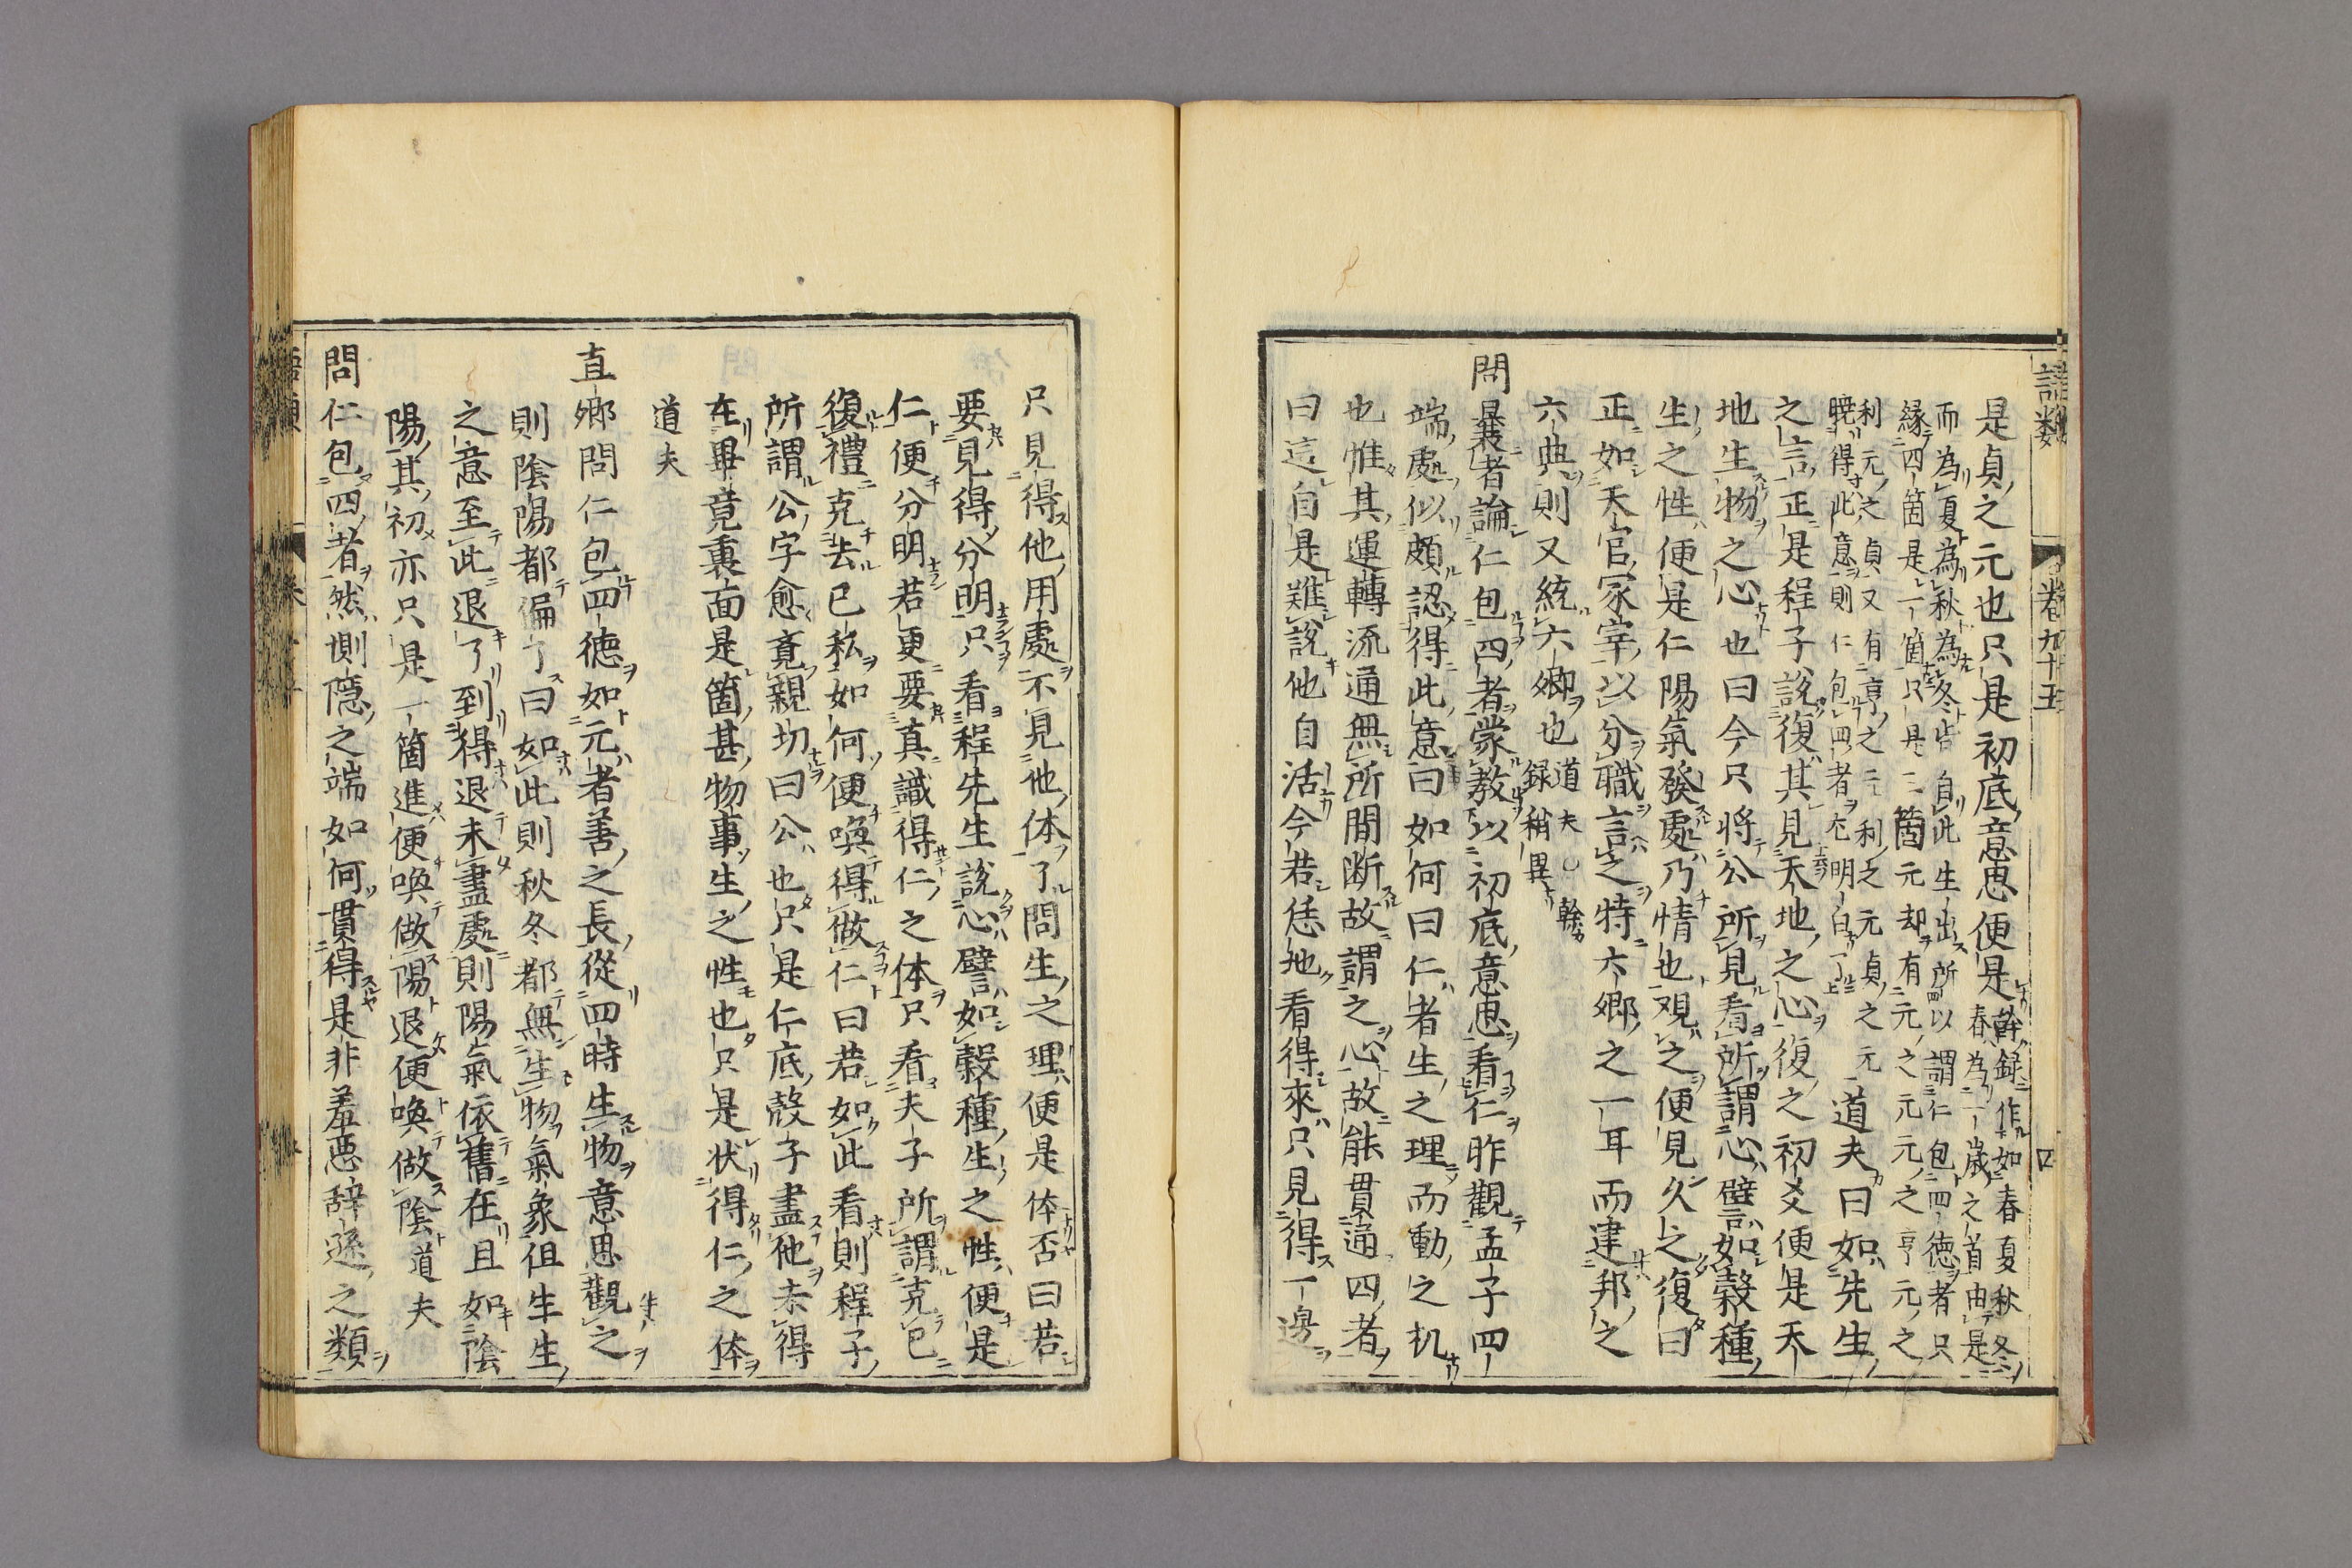 語類　卷九十五　四
是貞之元也只是初底意思便是𠏉録作如春夏秋冬春為一歳之首由是
而為夏為秋為冬皆自此生出所以謂仁包四徳者只
縁四箇是一箇只是三箇元却有元之元元之亨元之
利元之貞又有亨之元利之元貞之元
曉得此意則仁包四者尤明白了道夫曰如先生
之言正是程子說復其見天地之心復之初爻便是天
地生物之心也曰今只將公所見看所謂心譬如穀種
生之性便是仁陽氣發處乃情也觀之便見久之復曰
正如天官冢宰以分職言之特六郷之一耳而建邦之
六典則又統六郷也道夫〇𠏉録稍異
問曩者論仁包四者蒙教以初底意思看仁昨觀孟子四
端處似頗認得此意曰如何曰仁者生之理而動之机
也惟其運轉流通無所間断故謂之心故能貫通四者
曰這自是難說他自活今若恁地看得來只見得一邊
只見得他用處不見他体了問生之理便是体否曰若
要見得分明只看程先生說心譬如穀種生之性便是
仁便分明若更要真識得仁之体只看夫子所謂克己
復禮克去己私如何便喚得做仁曰若如此看則程子
所謂公字愈覔親切曰公也只是仁底殻子盡他未得
在畢竟裏面是箇甚物事生之性也只是状得仁之体
道夫
直郷問仁包四德如元者善之長從四時生物意思觀之
則陰陽都偏了曰如此則秋冬都無生物氣象但生生
之意至此退了到得退未盡處則陽氣依舊在且如陰
陽其初亦只是一箇進便喚做陽退便喚做陰道夫
問仁包四者然惻隱之端如何貫得是非羞惡辞遜之類